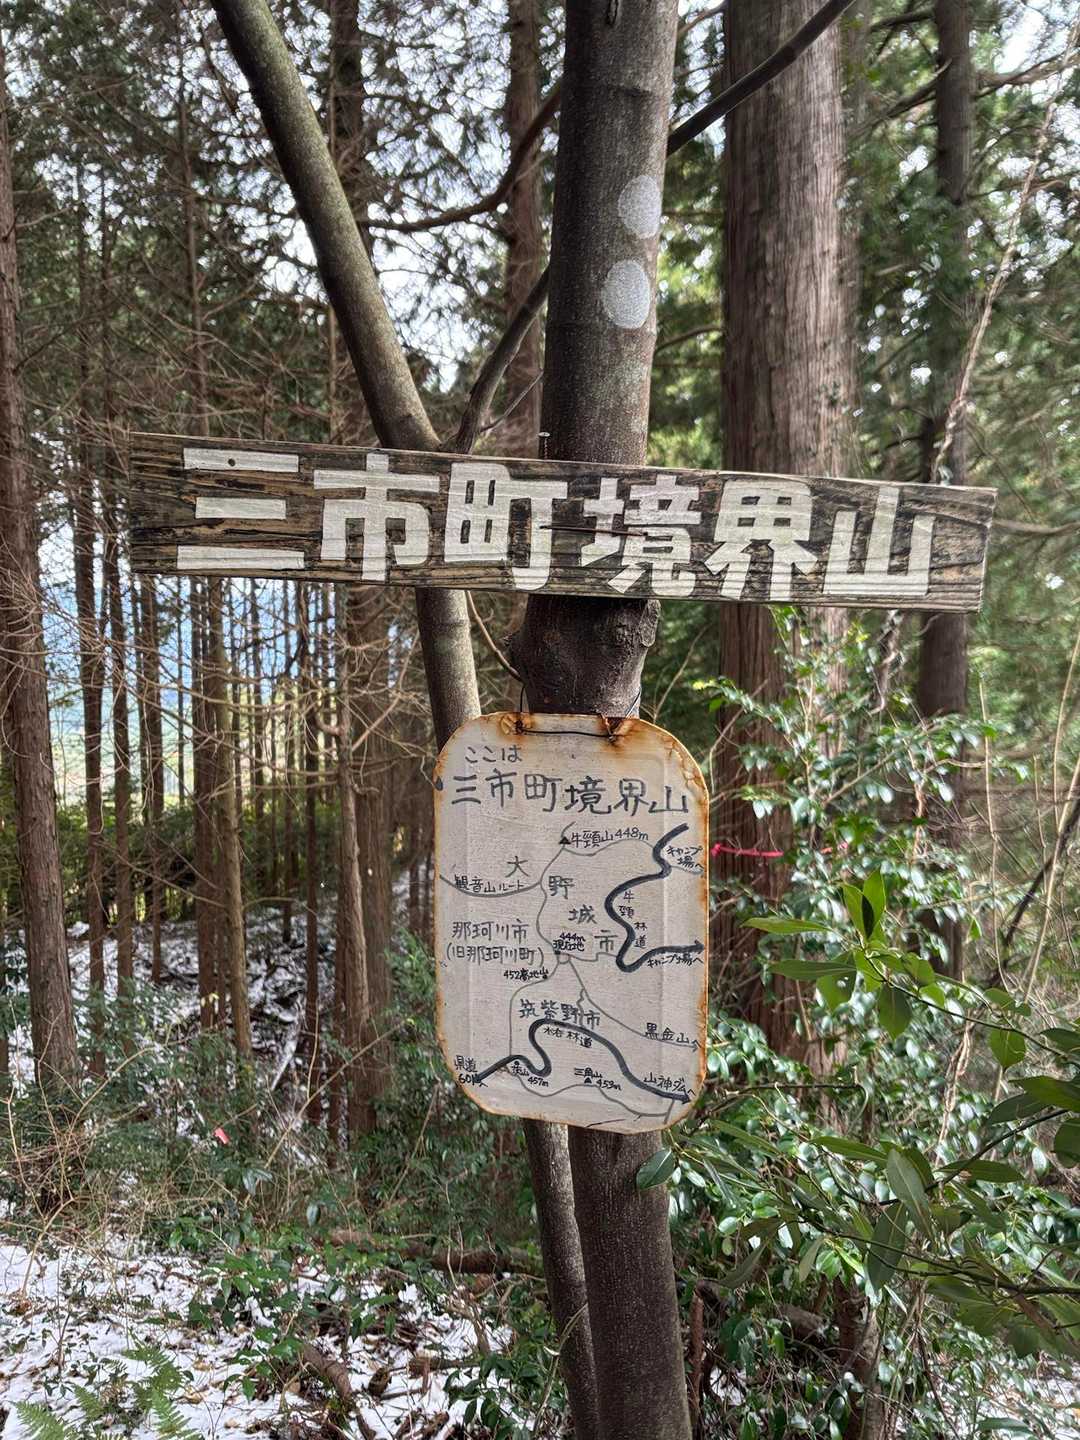 三市町境界山
ここは
三市町境界山
牛頸山448m
キャンプ
場へ
大
野
城
市
観音山ルート
牛
頸
林
道
那珂川市
(旧那珂川町)
444m
現在地
キャンプ場へ
452高地
筑紫野市
林道
黒金山へ
県道
60号へ
457m
三角山
453m
山神ダムへ